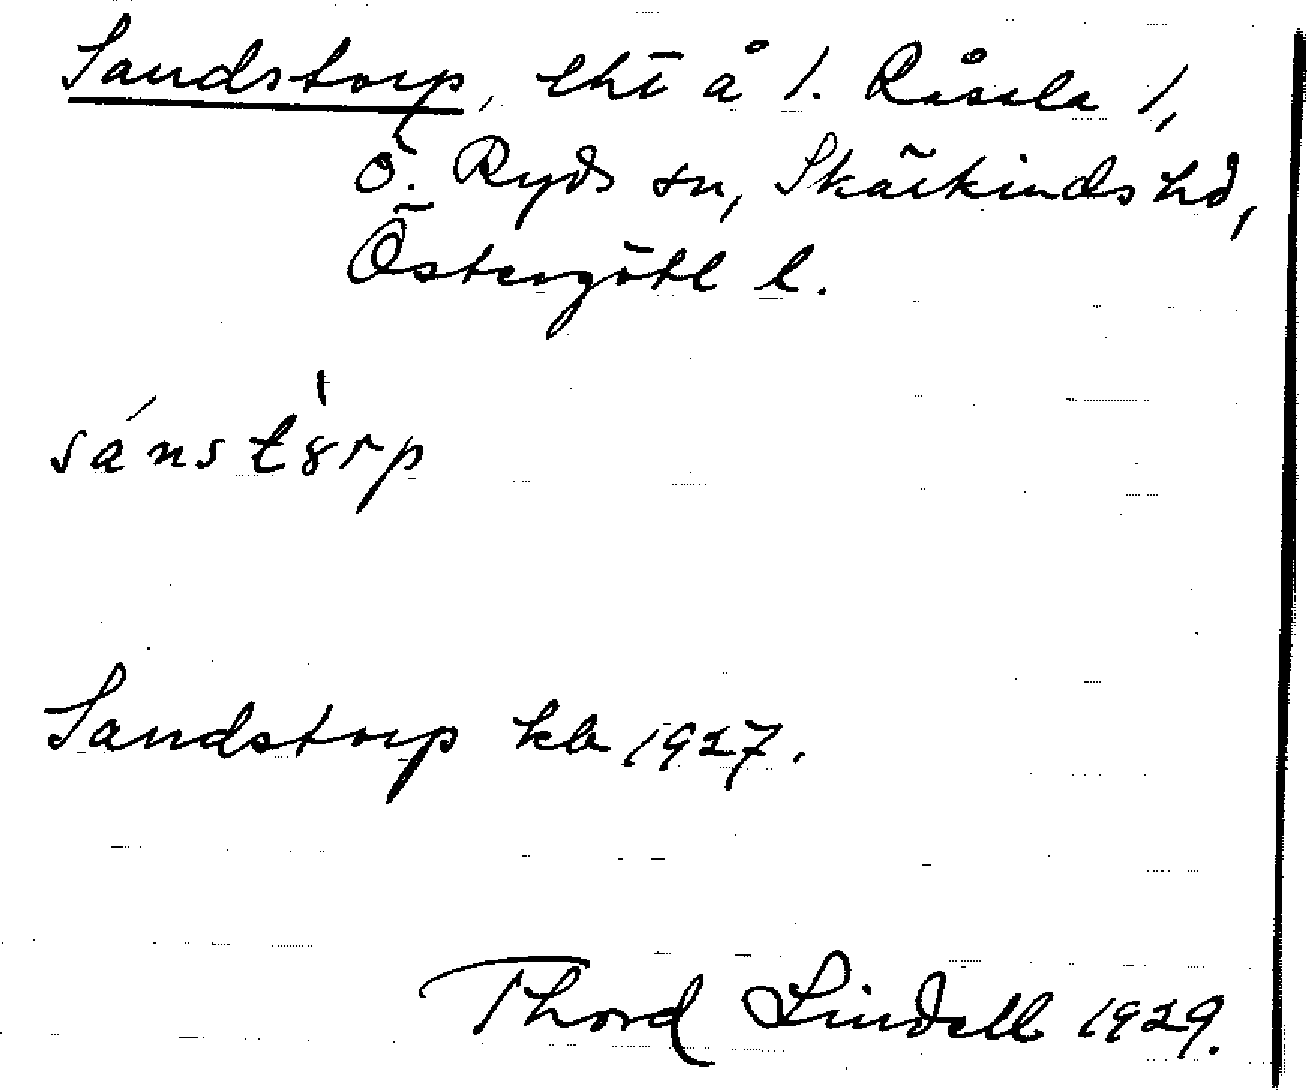 Sandstorp, lht å 1. Råsela 1,
Ö. Ryds sn, Skärkinds hd,
Östergötl l.
sánstȣ̍rp
Sandstorp kb 1927.
Thord Lindell 1929.